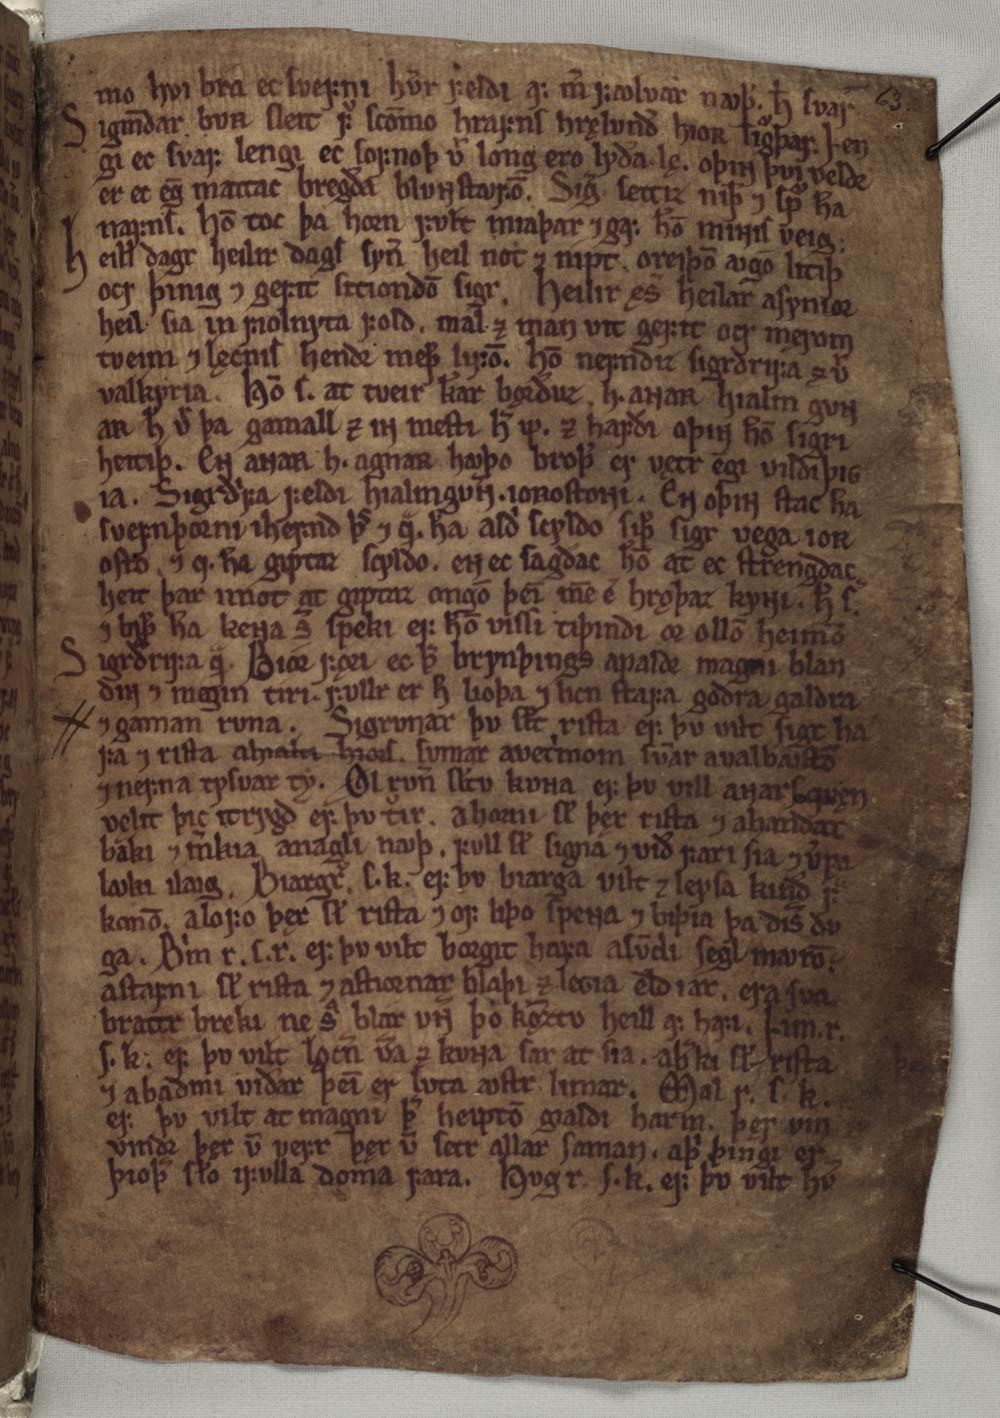 63
mo hvi bra ec svefni hv̄r feldi a᷎ m̄ fꜹlvar nꜹþ. h̄ svaꝛ̄
Sigmūdar bur sleit fͬ scōmo hrafns hrælund̄ hior sigþar. Len
gi ec svaf lengi ec sofnoþ v̄ long ero lyða lę. oþiɴ þvi veldꝛ
er ec eg̅ mattac bregða blunstꜹfō. Sig̅ settiz niþꝛ ⁊ spͬ h̅a
nafns. h̅o toc þa horn fult miaþar ⁊ gaf h̅o miɴis veig.
Heill dagr heilir dags syn̄ heil not ⁊ nipt. oreiþō ꜹgo litiþ
ocr þinig ⁊ gefit sitiondō sigr. Heilir ęs̄ heilar asynior
heil sia in fiolnyta fold. mal ⁊ manvit gefit ocr męrom
tveim ⁊ lęcnis hendr meþ lifō. h̅o nefndiz sigrdrifa ⁊ v̄
valkyria. h̅o s. at tveir k̅ar borðuz. h. aɴaʀ hialm guɴ
aʀ h̅ v̄ þa gamall ⁊ iɴ mesti h̅ m̄. ⁊ hafði oþiɴ h̅o sigri
heitiþ. En aɴaʀ h. agnaʀ hꜹþo broþꝛ er vętr egi vildi þig
ia. Sigrdͥfa feldi hialmguɴ. i orostoɴi. En oþiɴ stac h̅a
svefnþorni i hefnd þs̄ ⁊ q̄. h̅a aldͥ scyldo siþꝛ sigr vega i or
osto. ⁊ q. h̅a giptaz scyldo. en ec sagdac hō at ec strengdac
heit þar i mot at giptaz øngō þei m̄e ē hręþaz kyɴi. h̅ s.
⁊ biþꝛ h̅a keɴa s̄ speki ef h̅o vissi tiþindi or ollō heimō
Sigrdrifa q̄. Bior fǫri ec þ̄ brynþings apaldr magni blan
diɴ ⁊ megin tiri. fullr er h̅ lioþa ⁊ licn stafa godra galdra
⁊ gaman runa. Sigrunar þv sl̄t rista ef þv vilt sigr ha
fa ⁊ rista a hialti hiors. sumar a vettrimom sum̄ar a valbꜹstō
⁊ nefna tysvar ty. Ol run̄ sl̄tv kuɴa ef þv vill aɴars quęn
velit þic i trygd ef þv trͥr. a horni sl̄ þęr rista ⁊ a handar
baki ⁊ m̄kia a nagli nꜹþ. full sl̄ signa ⁊ vid fari sia ⁊ v̄pa
lꜹki i lꜹg. Biargr̄. s. k. ef þv biarga vilt ⁊ leysa kind fͬ
konō. a lofo þęr sl̄ rista ⁊ of liþo speɴa ⁊ biþia þa dis̄ du
ga. Bͥm r. s. r. ef þv vilt borgit hafa a sūdi segl mꜹrō.
a stafni sl̄ rista ⁊ a stiornar blaþi ⁊ legia eld i ár. era sva
brattr breki ne s̄ blár uɴ̄ þo kōztv heill af hafi. Lim. r.
s. k. ef þv vilt lęcn̄ v̄a ⁊ kuɴa sár at siá. a berki sl̄ rista
⁊ a badmi vidar þei er luta ꜹstr limar. Mal r. s. k.
ef þv vilt at magni þͬ heiptō gialdi harm. þer vin
vindr þęr v̄ vefr þęr v̄ setr allar saman. a þͥ þingi er
þioþꝛ sl̄o i fulla dóma fara. Hug r. s. k. ef þv vilt hv̄